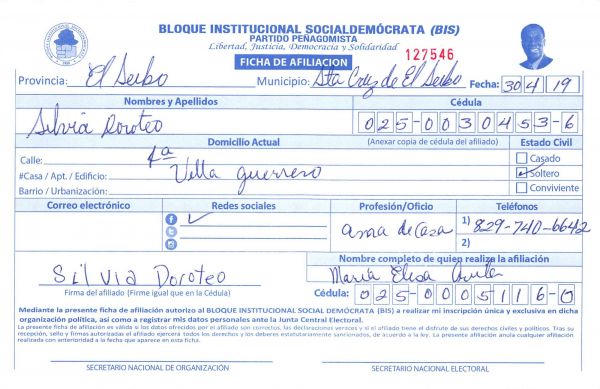 BLOQUE INSTITUCIONAL SOCIALDEMÓCRATA (BIS)
PARTIDO PEÑAGOMISTA
Libertad, Justicia, Democracia y Solidaridad
127546
FICHA DE AFILIACIÓN
Provincia: El Seibo Municipio: Sta Cruz de El Seibo Fecha: 30 4 19
Nombres y Apellidos Cédula
Silvia Doroteo 025-0030453-6
Domicilio Actual (Anexar copia de cédula del afiliado) Estado Civil
Calle: 4a Casado
#Casa / Apt. / Edificio: Villa guerrero Soltero
Barrio / Urbanización: Conviviente
Correo electrónico Redes sociales Profesión/Oficio Teléfonos
ama de casa 1) 829-740-6642
2)
Nombre completo de quien realiza la afiliación
Silvia Doroteo María Elisa
Firma del afiliado (Firme igual que en la Cédula) Cédula: 025-0005116-0
Mediante la presente ficha de afiliación autorizo al BLOQUE INSTITUCIONAL SOCIAL DEMÓCRATA (BIS) a realizar mi inscripción única y exclusiva en dicha
organización política, así como a registrar mis datos personales ante la Junta Central Electoral.
La presente ficha de afiliación es válida si los datos ofrecidos por el afiliado son correctos, las declaraciones veraces y si el afiliado tiene el disfrute de sus derechos civiles y políticos. Tras su
recepción, sello y firmas autorizadas el afiliado ejercerá todos los derechos y los deberes estatutariamente sancionados, de acuerdo a la ley. La presente afiliación anula cualquier afiliación
realizada con anterioridad a la fecha que aparece en esta ficha.
SECRETARIO NACIONAL DE ORGANIZACIÓN SECRETARIO NACIONAL ELECTORAL